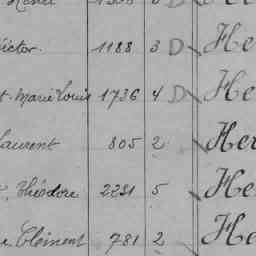 Victor. 1188 3 D He
t. Marie Louis 1736 4 D He
Laurent 805 2 Her
, Théodore 2231 5 He
Clément 781 2 He